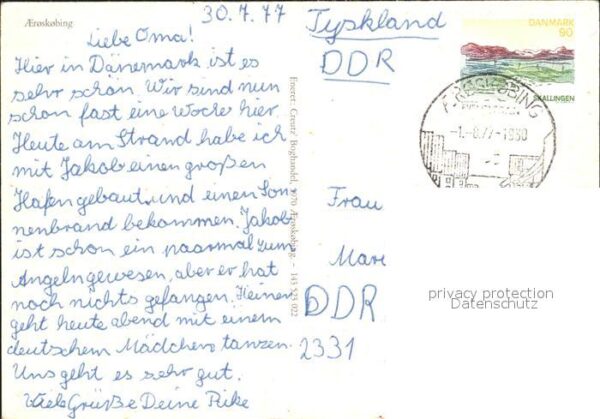 Ærøskøbing
30.7.77
Liebe Oma!
Hier in Dänemark ist es
sehr schön. Wir sind nun
schon fast eine Woche hier.
Heute am Strand habe ich
mit Jakob einen großen
Hafen gebaut und einen Son-
nenbrand bekommen. Jakob
ist schon ein paarmal zum
Angeln gewesen, aber er hat
noch nichts gefangen. Heiner
geht heute abend mit einem
deutschem Mädchen tanzen.
Uns geht es sehr gut.
Viele Grüße Deine Rike
Eneret: Creutz' Boghandel, 5970 Ærøskøbing. - 145 523 022
Tyskland
DDR
DANMARK
90
SKALLINGEN
ÆRØSKØBING
-1.-8.77-1930
Frau
Mare
DDR
2331
privacy protection
Datenschutz